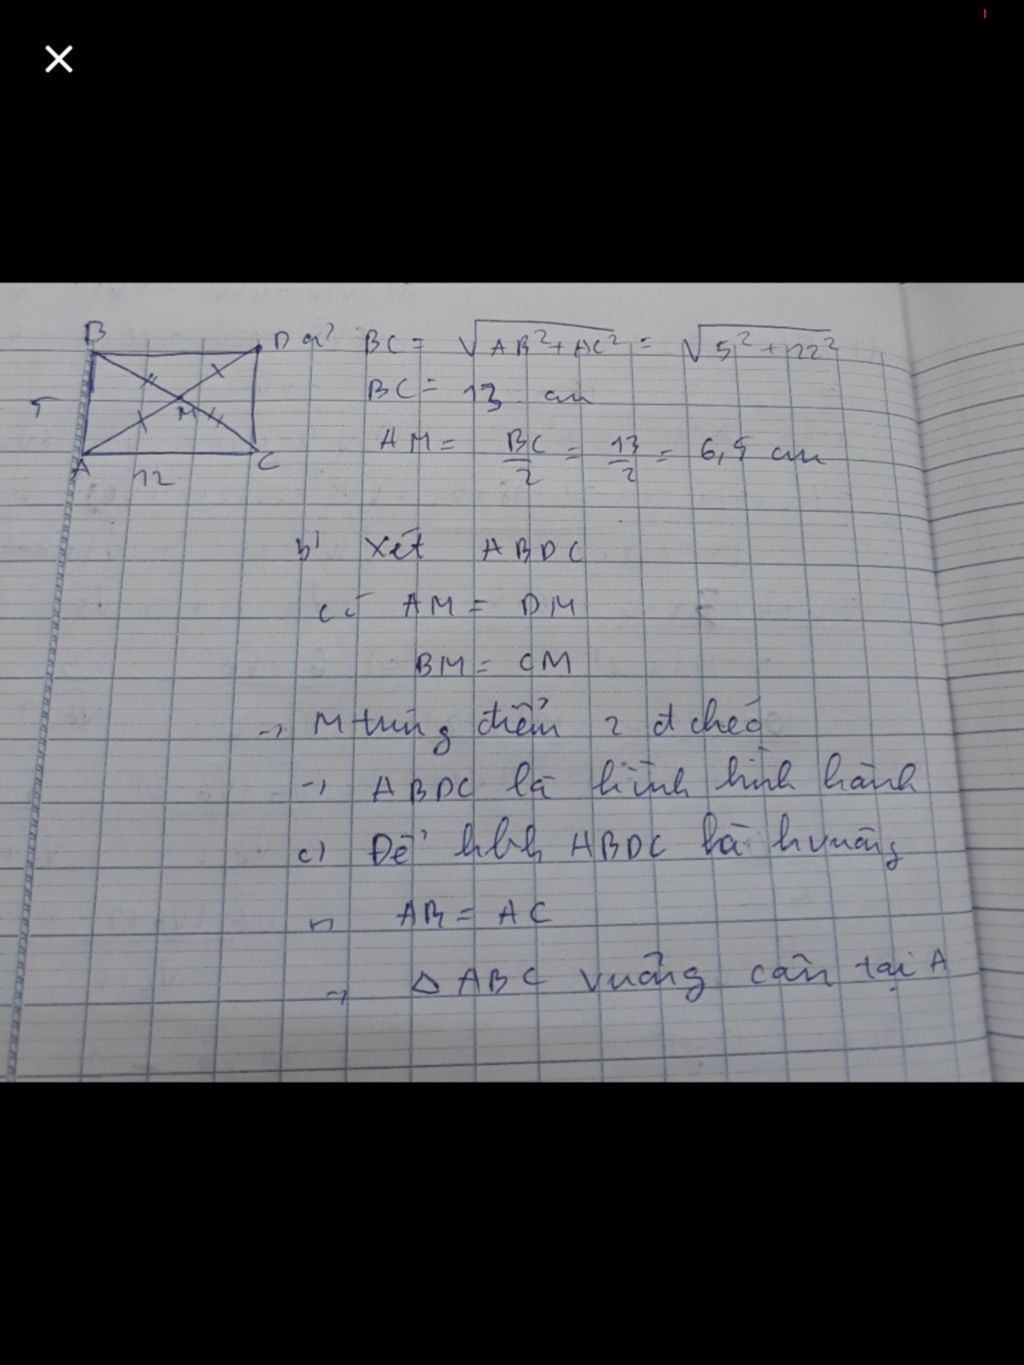 B
D a) BC = √AB²+AC² = √5²+12²
BC = 13 cm
5
M
AM = BC/2 = 13/2 = 6,5 cm
A
C
12
b) Xét ABDC
có AM = DM
BM = CM
→ M trung điểm 2 đ chéo
→ ABDC là hình bình hành
c) Để hbh ABDC là hvuông
AB = AC
→ Δ ABC vuông cân tại A